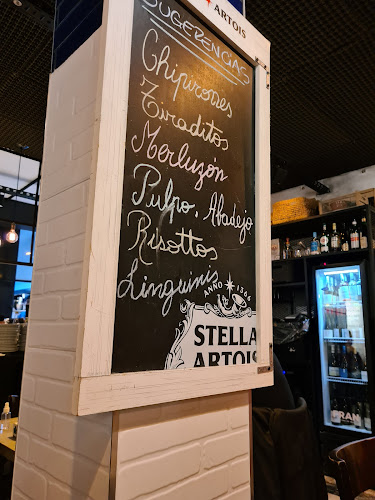 ARTOIS
SUGERENCIAS
Chipirones
Tiraditos
Merluzón
Pulpo, Abadejo
Risottos
Linguinis
ANNO 1366
STELLA
ARTOIS